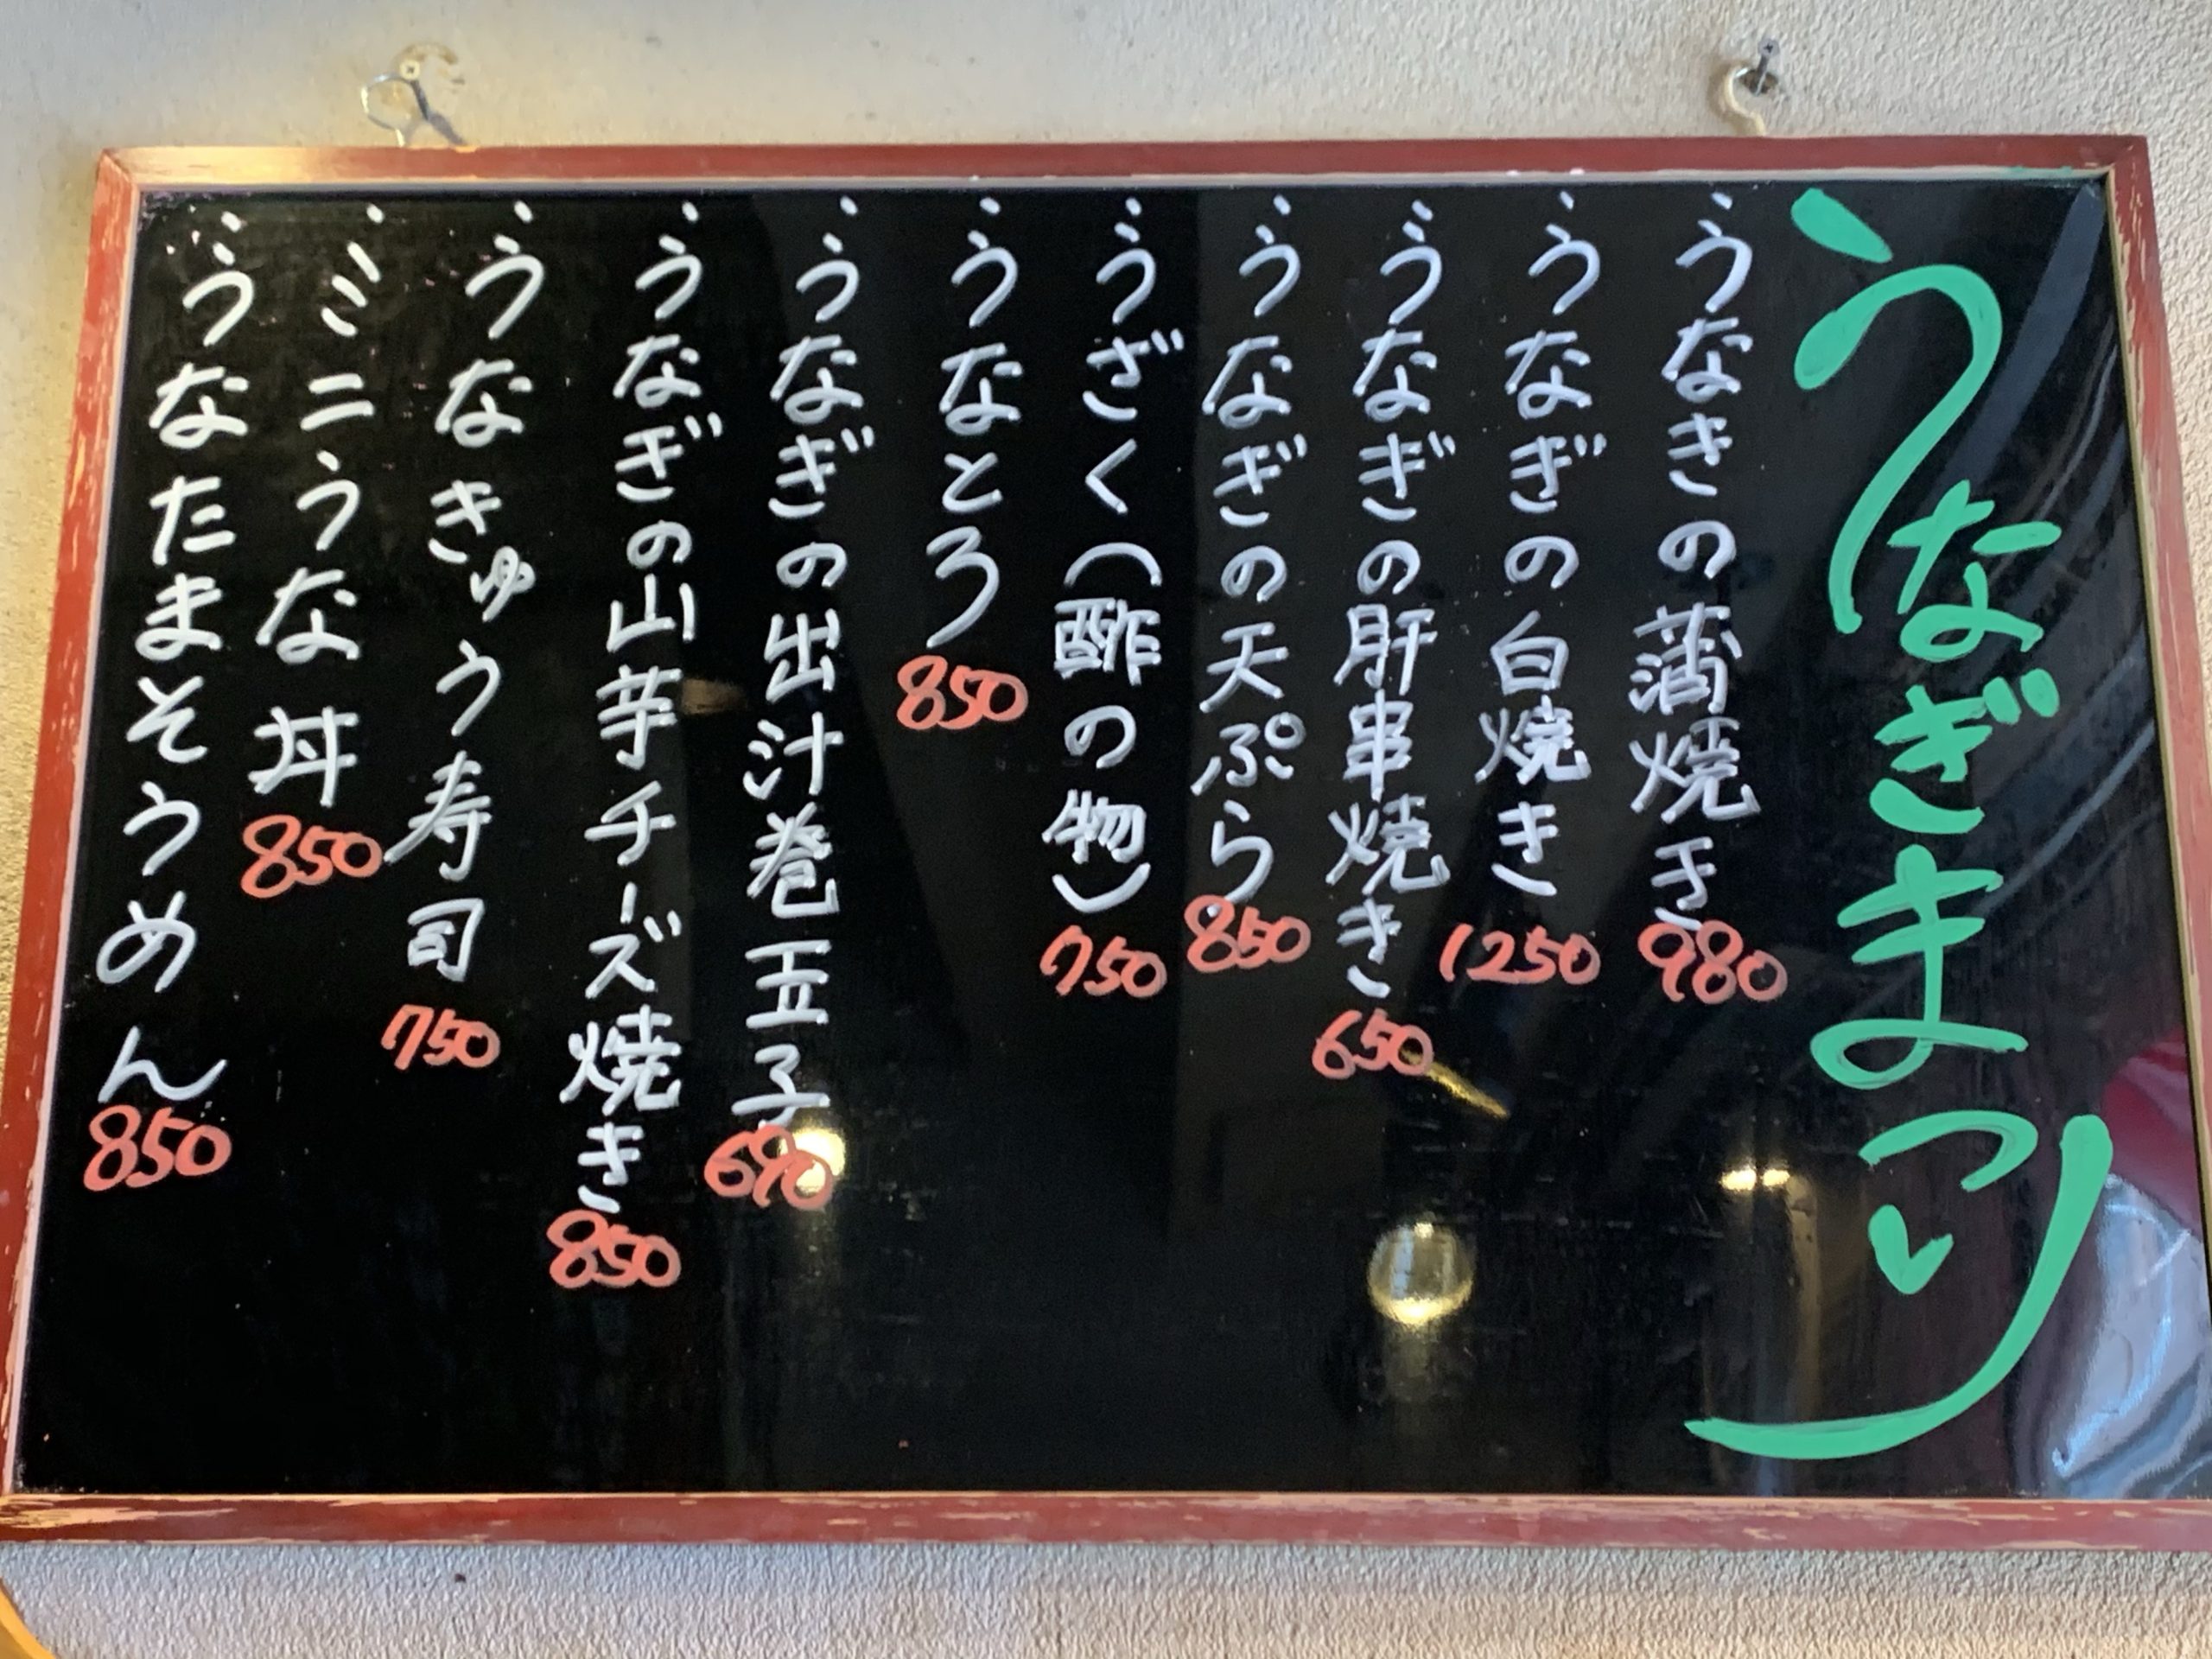 うなぎまつり
・うなきの蒲焼き 980
・うなぎの白焼き 1250
・うなぎの肝串焼き 650
・うなぎの天ぷら 850
・うざく(酢の物) 750
・うなとろ 850
・うなぎの出汁巻玉子 690
・うなぎの山芋チーズ焼き 850
・うなきゅう寿司 750
・ミニうな丼 850
・うなたまそうめん 850